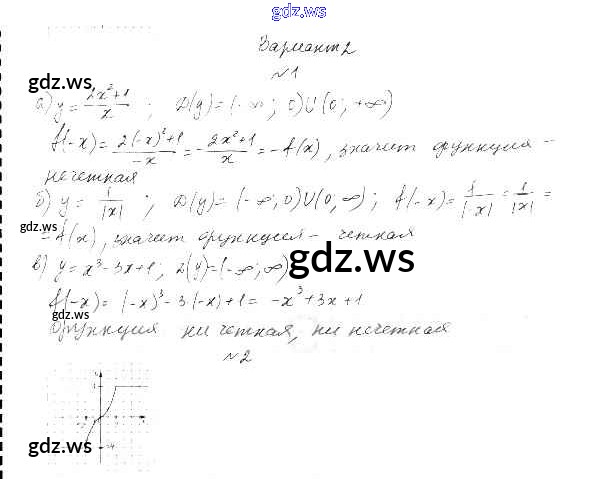 gdz.ws
Вариант 2
№1
gdz.ws
а) y = 2x²+1/x ; D(y)=(-∞; 0)U(0; +∞)
f(-x) = 2(-x)²+1/-x = - 2x²+1/x = -f(x), значит функция -
нечетная
б) y = 1/|x| ; D(y)=(-∞; 0)U(0; ∞) ; f(-x) = 1/|-x| = 1/|x| =
gdz.ws
= f(x), значит функция - четная
в) y = x³-3x+1; D(y)=(-∞; ∞)
gdz.ws
f(-x) = (-x)³-3·(-x)+1 = -x³+3x+1
gdz.ws
Функция ни четная, ни нечетная
№2
gdz.ws
gdz.ws